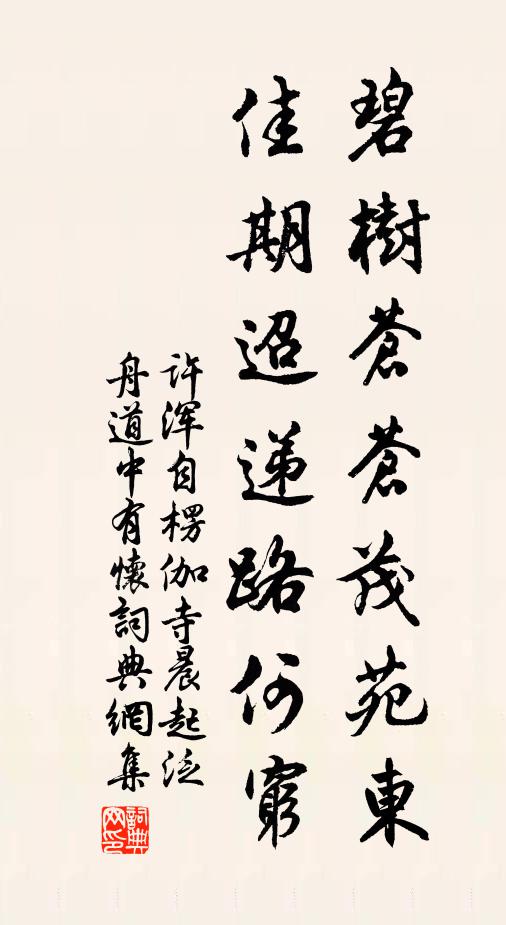 碧樹蒼蒼茂苑東
佳期迢递路何窮
許渾自楞伽寺晨起泛
舟道中有懷詞典網集
詞典
网印